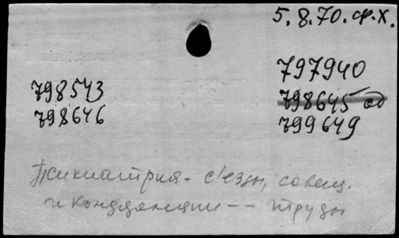 5.8.70. ф.х.
797940
798543
798645
798646
799649
Психиатрия - съезды, совещ.
и конференции -- труды